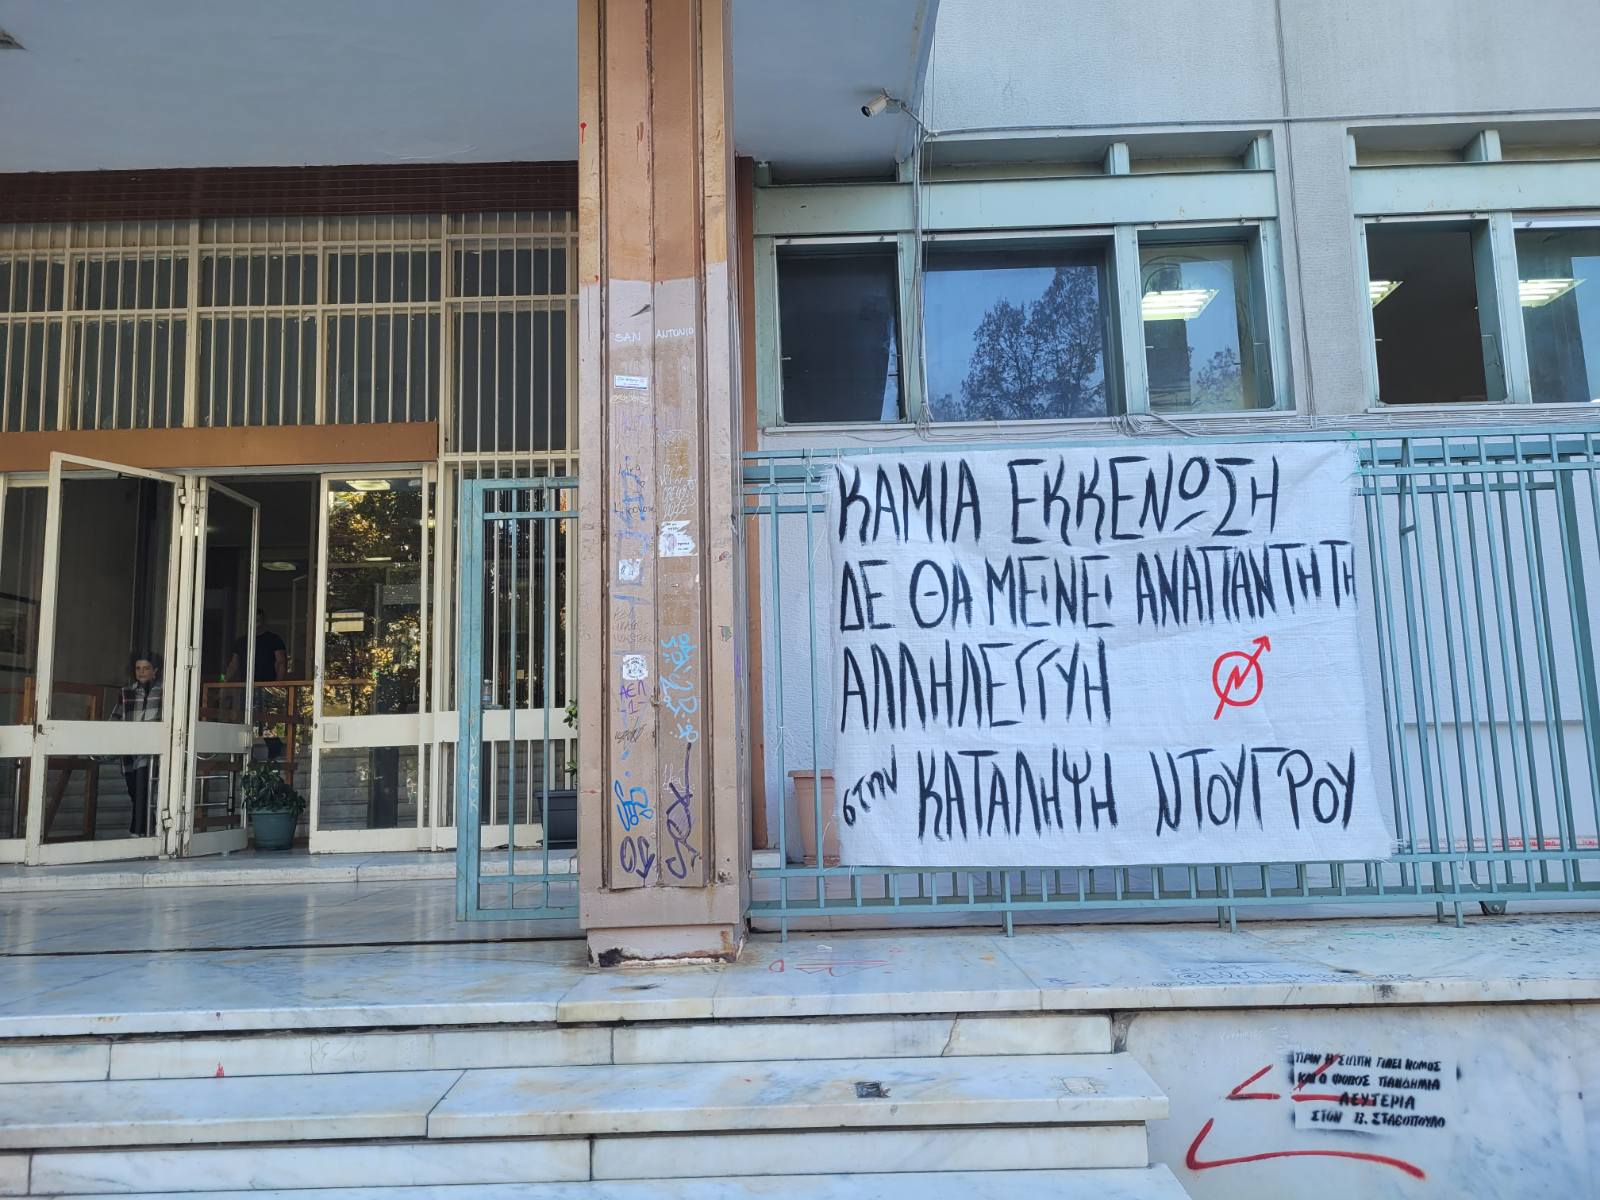 ΚΑΜΙΑ ΕΚΚΕΝΩΣΗ
ΔΕ ΘΑ ΜΕΙΝΕΙ ΑΝΑΠΑΝΤΗΤΗ
ΑΛΛΗΛΕΓΓΥΗ
στην ΚΑΤΑΛΗΨΗ ΝΤΟΥΓΡΟΥ
SAN ANTONIO
ΑΕΛ
ΠΡΙΝ Η ΣΙΩΠΗ ΓΙΝΕΙ ΝΟΜΟΣ
ΚΑΙ Ο ΦΟΒΟΣ ΠΑΝΔΗΜΙΑ
ΛΕΥΤΕΡΙΑ
ΣΤΟΝ Β. ΣΤΑΘΟΠΟΥΛΟ